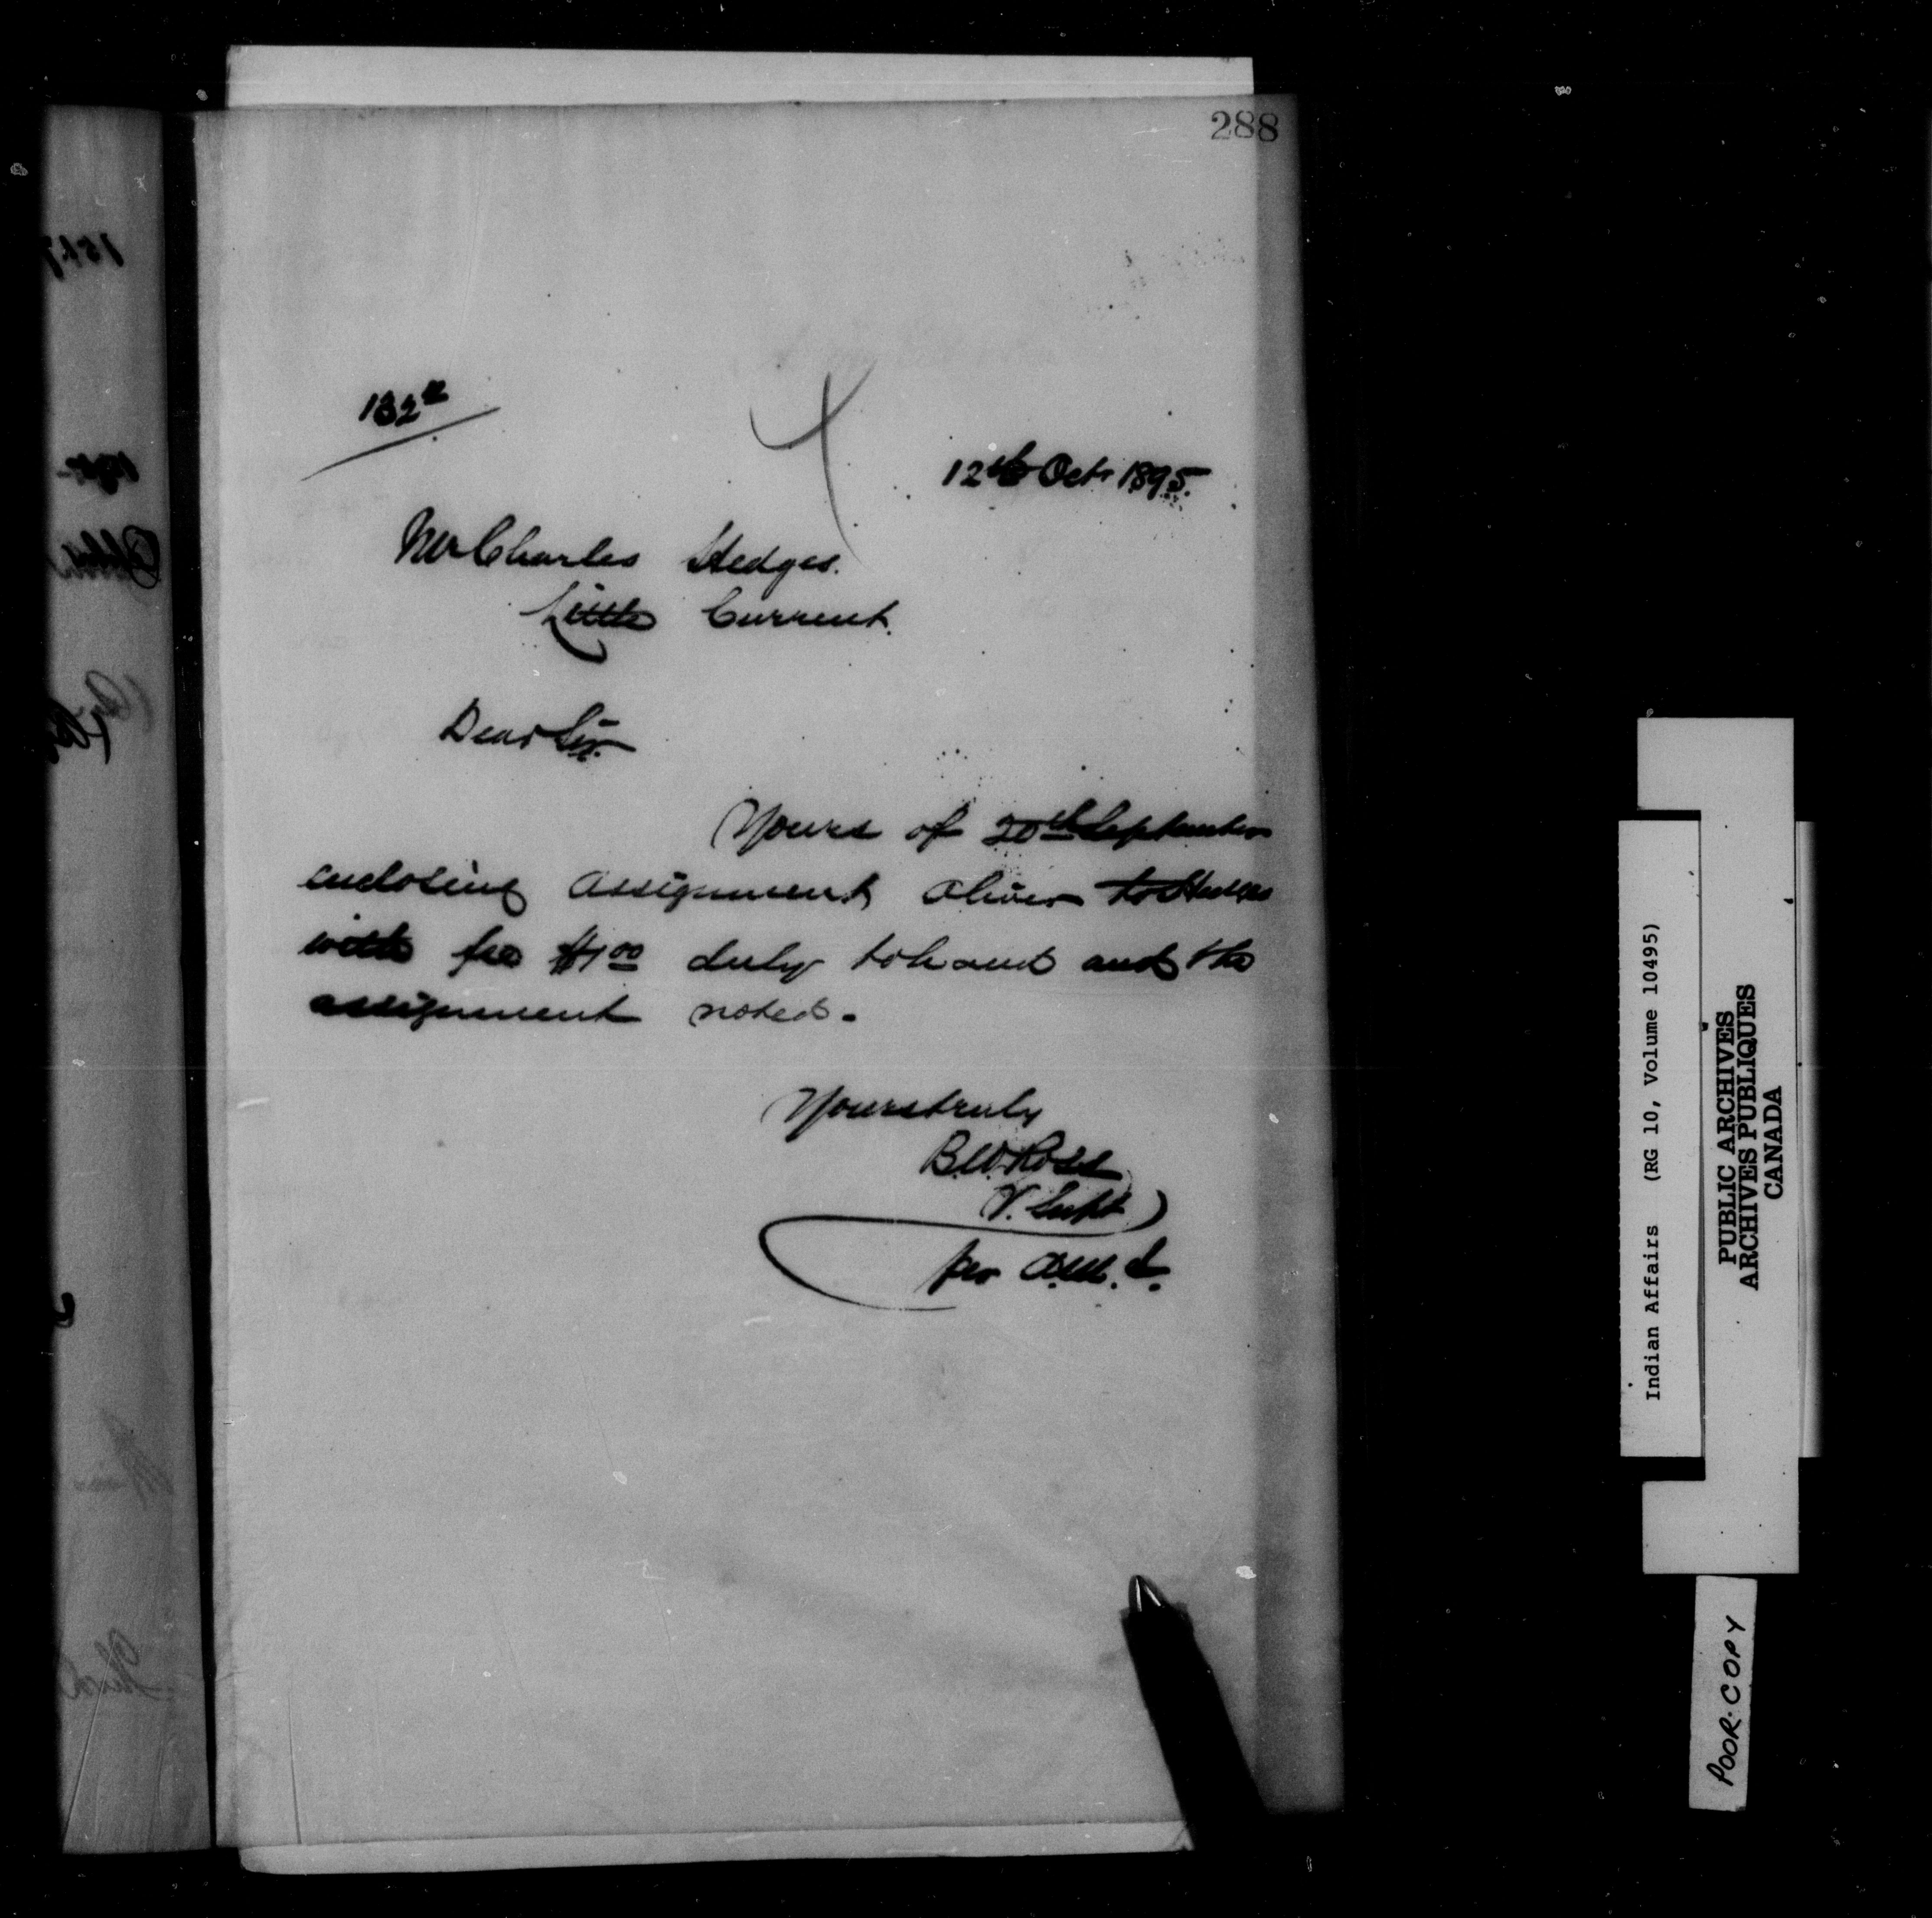 288
132
12th Oct 1895.
Mr Charles Hedges.
Little Current.
Dear Sir.
Yours of 20th September
enclosing assignment Oliver to Hedges
with fee $1 00 duly to hand and the
assignment noted.
Yours truly
B.W. Ross
V. Supt
per A.M.
Indian Affairs (RG 10, Volume 10495)
PUBLIC ARCHIVES
ARCHIVES PUBLIQUES
CANADA
POOR COPY